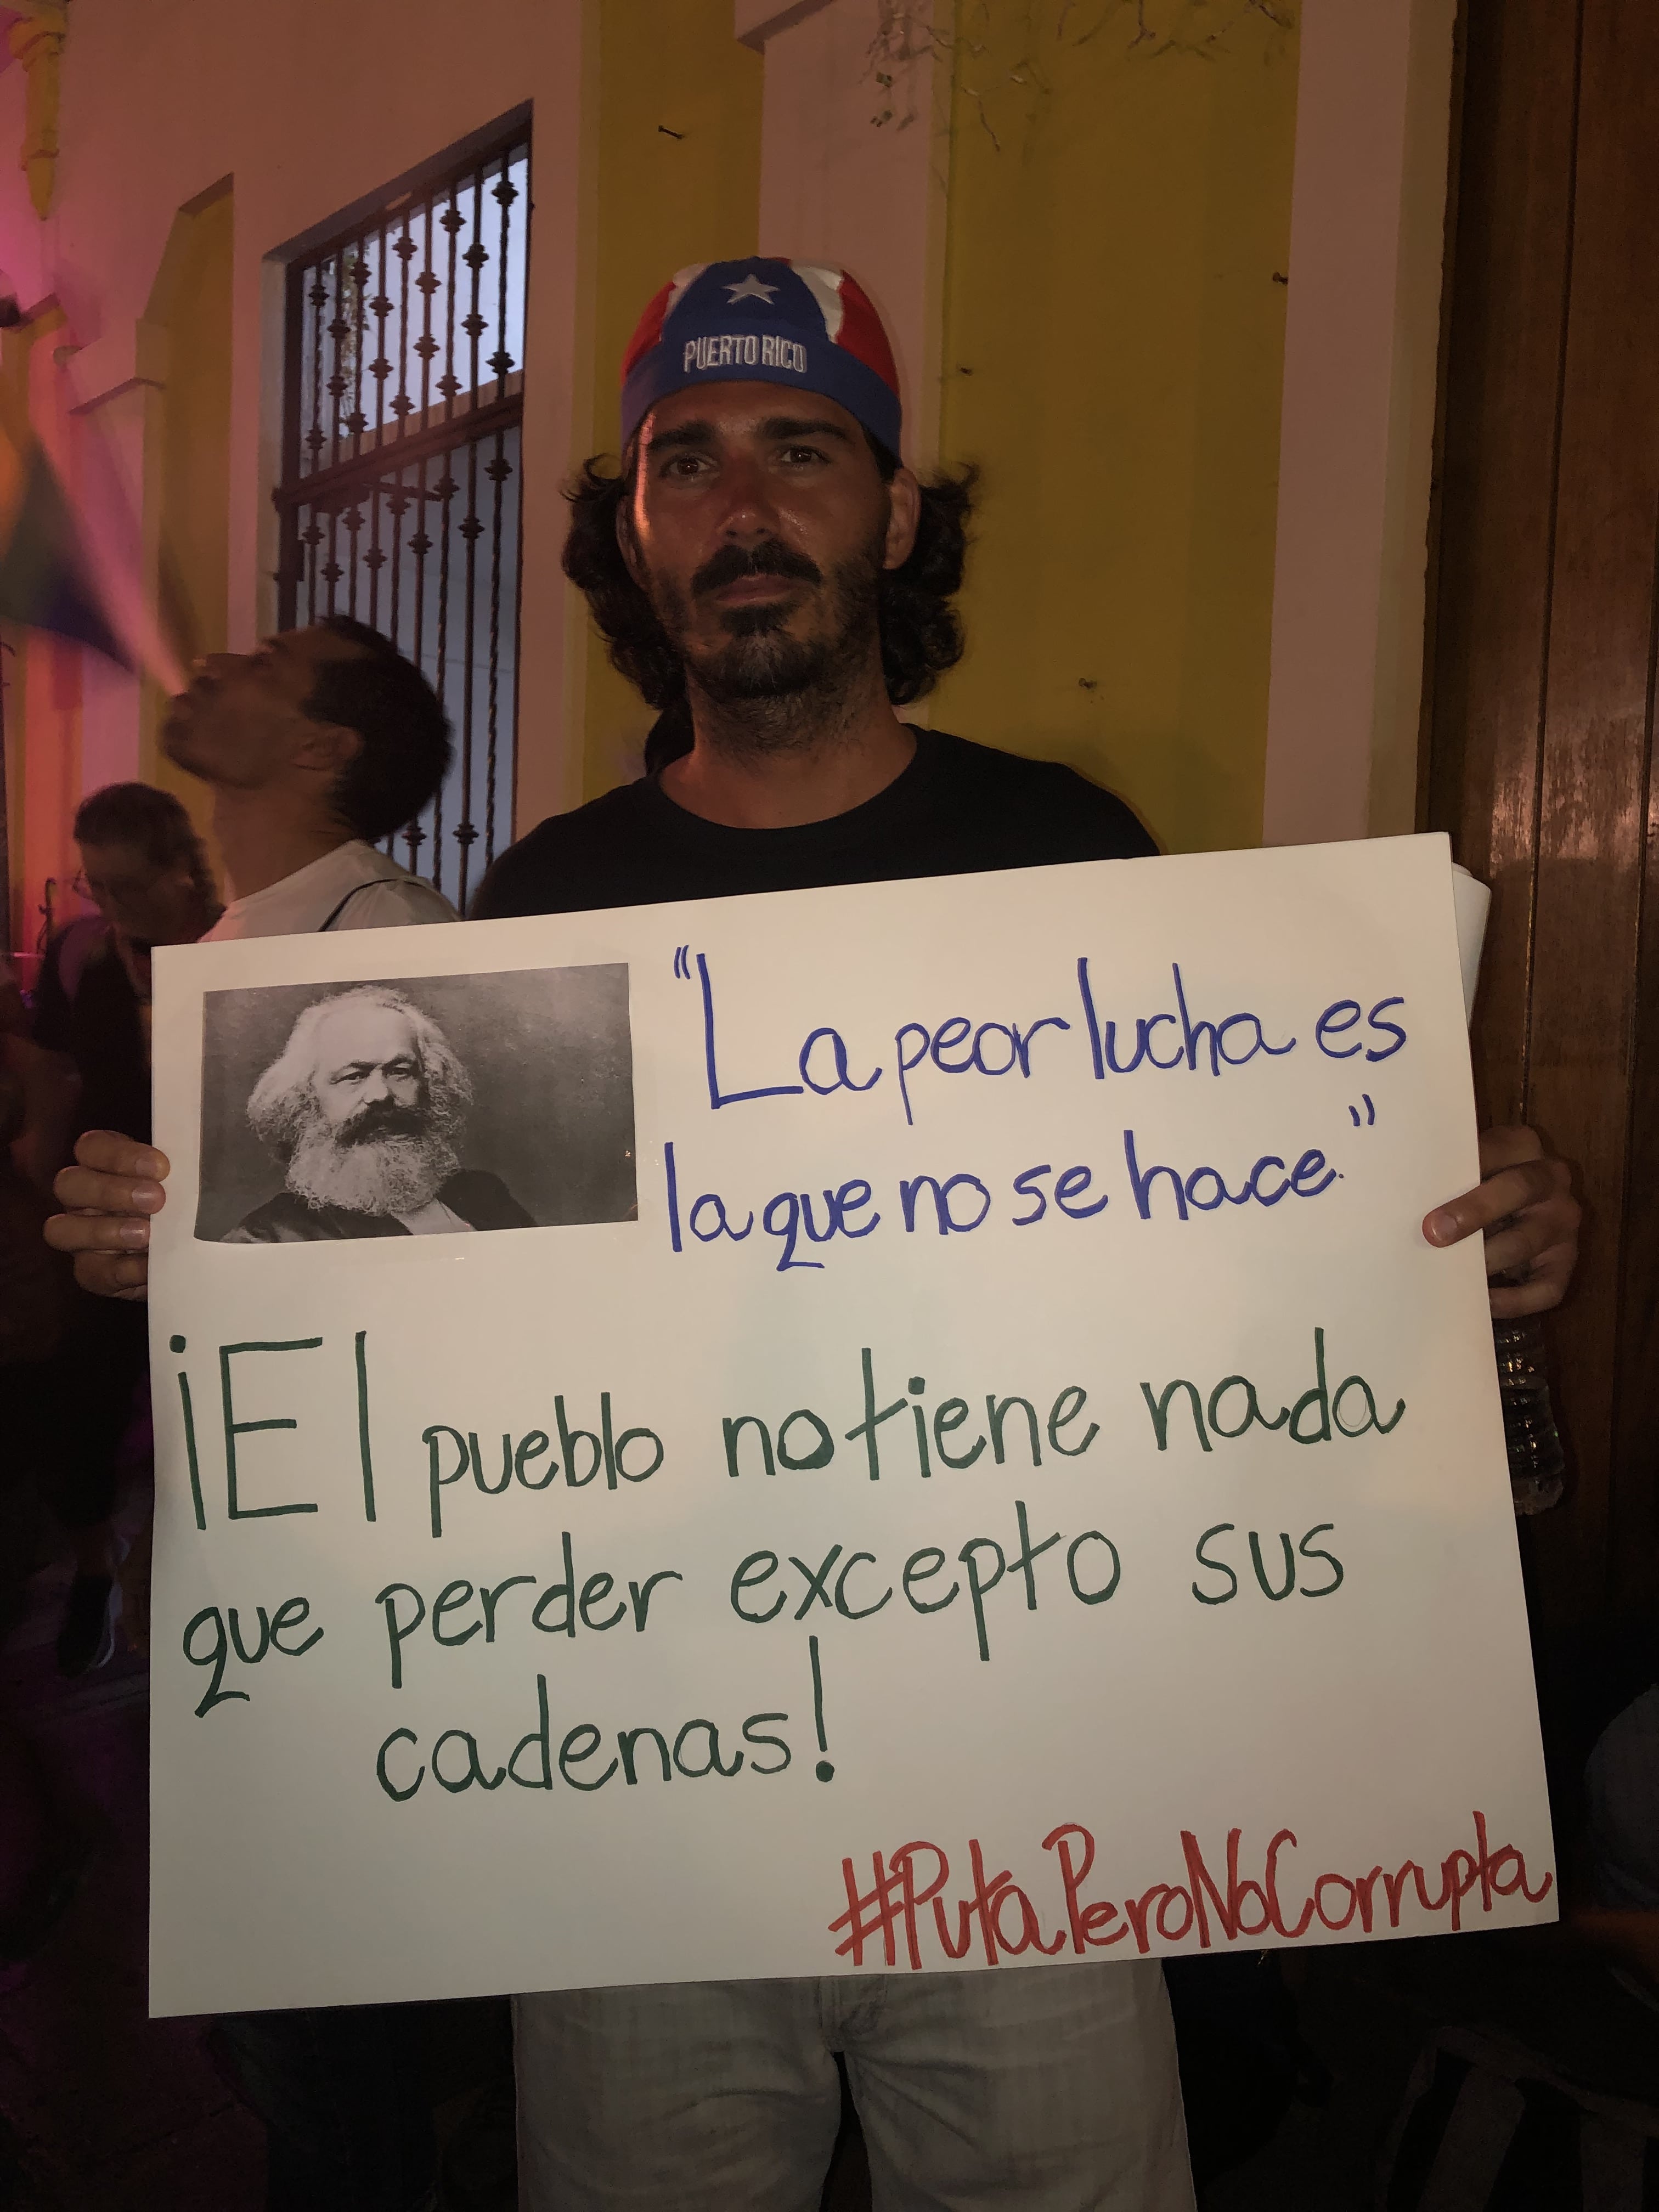 PUERTO RICO
“La peor lucha es
la que no se hace.”
¡El pueblo no tiene nada
que perder excepto sus
cadenas!
#PutaPeroNoCorrupta